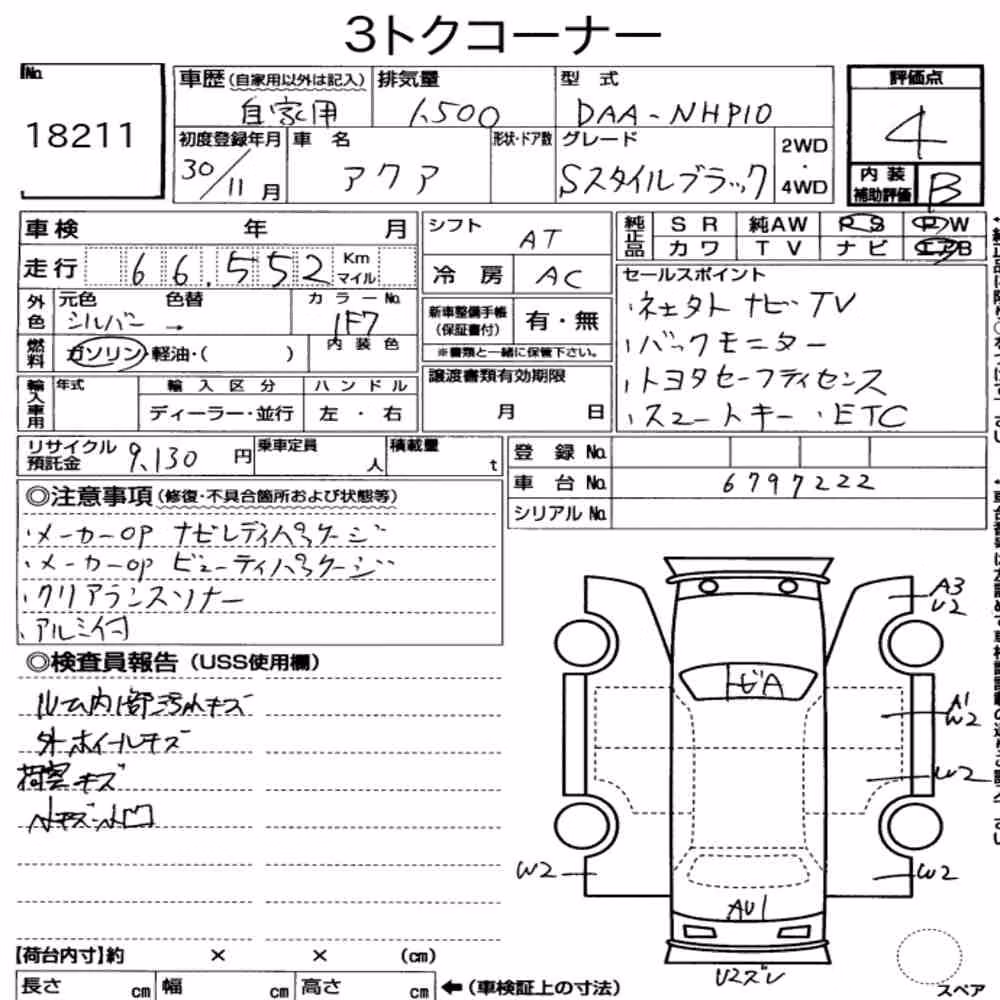 3トクコーナー
No.
18211
車歴(自家用以外は記入)
自家用
排気量
1,500
型 式
DAA-NHP10
評価点
4
内装補助評価
B
初度登録年月
30/11月
車 名
アクア
形状・ドア数
グレード
Sスタイルブラック
2WD
・
4WD
車検 年 月
走行 66,552 Km マイル
外色
元色
シルバー →
色替
カラーNo.
1F7
燃料
ガソリン・軽油・( )
内装色
輸入車用
年式
輸入区分
ディーラー・並行
ハンドル
左 ・ 右
シフト
AT
冷 房
AC
新車整備手帳
(保証書付)
有・無
※書類と一緒に保管下さい。
譲渡書類有効期限
月 日
純正品
SR 純AW PS PW
カワ TV ナビ エアB
セールスポイント
・ネェタト ナビTV
・バックモニター
・トヨタセーフティセンス
・スマートキー ・ETC
リサイクル預託金
9,130 円
乗車定員
人
積載量
t
登 録 No.
車 台 No.
6797222
シリアル No.
◎注意事項(修復・不具合箇所および状態等)
・メーカーOP ナビレディパッケージ
・メーカーOP ビューティパッケージ
・クリアランスソナー
・アルミ付
◎検査員報告(USS使用欄)
ルーム内1部汚れキズ
外ホイールキズ
荷室キズ
小キズ小凹
A3
U2
トビA
A1
W2
W2
W2
W2
AU1
U2ズレ
【荷台内寸】約 × × (cm)
長さ cm
幅 cm
高さ cm
←(車検証上の寸法)
スペア